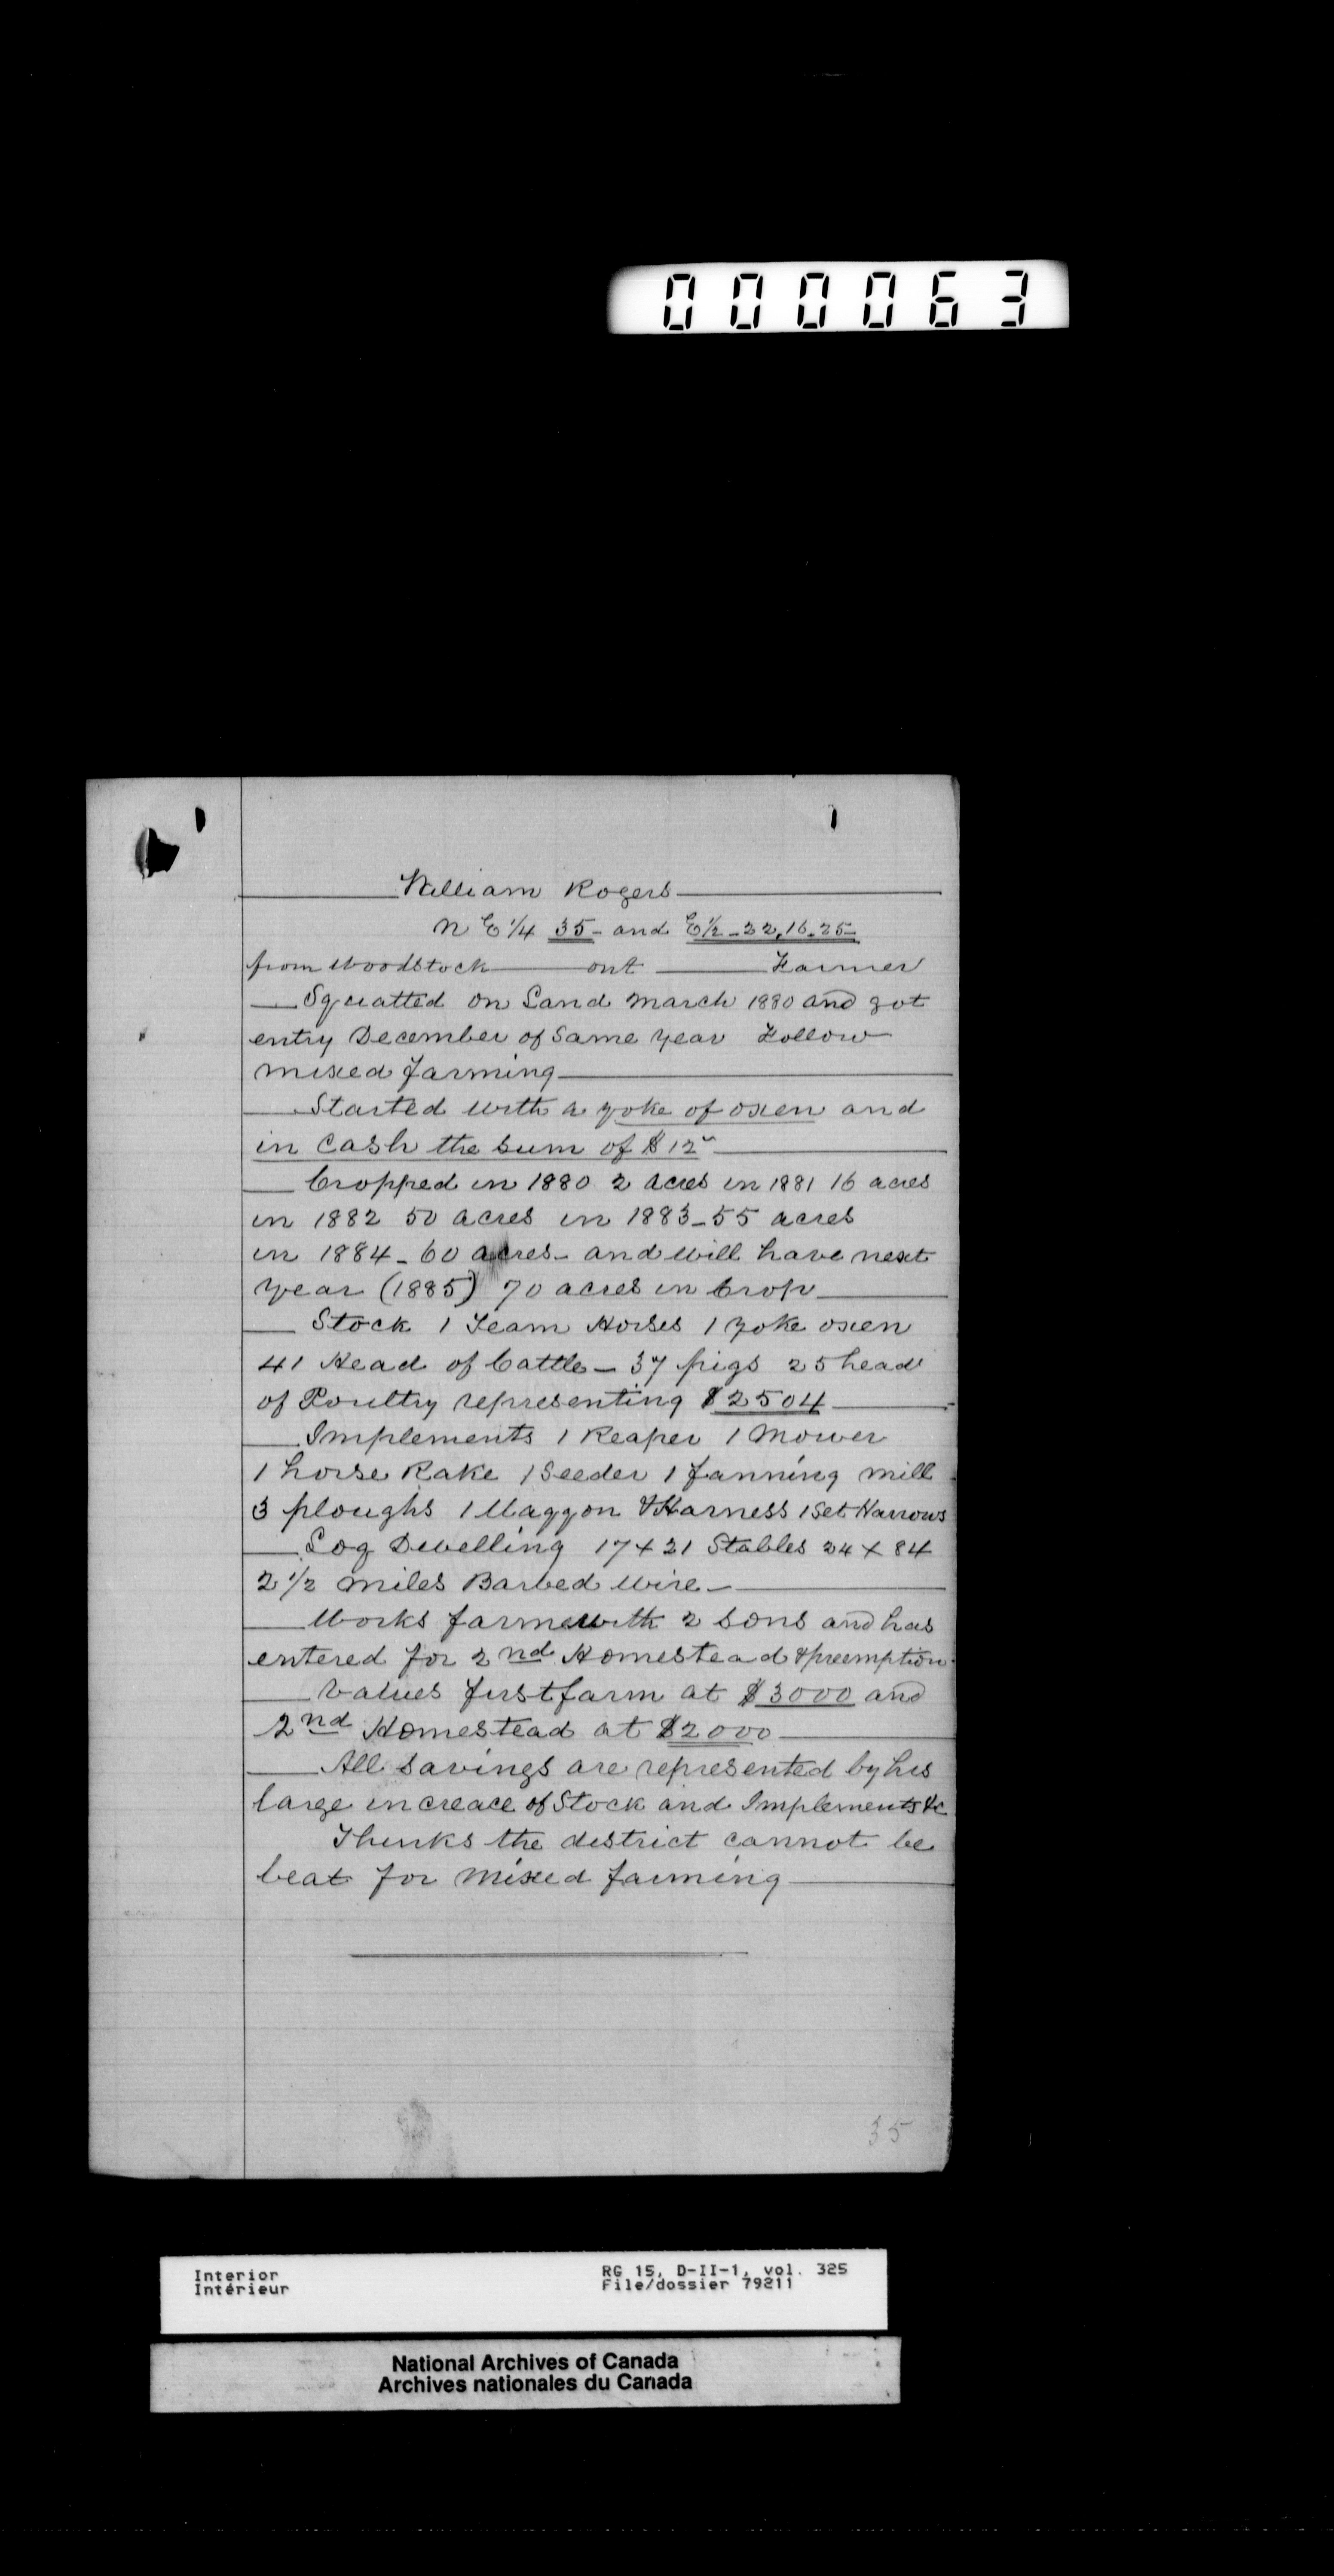 000063
William Rogers
N E 1/4 35 - and E 1/2 - 22, 16. 25
from Woodstock ont Farmer
Squatted on Land March 1880 and got
entry December of Same year Follow
mixed farming
Started with a yoke of oxen and
in cash the sum of $12
Cropped in 1880 2 acres in 1881 16 acres
in 1882 50 acres in 1883 - 55 acres
in 1884 - 60 acres - and will have next
year (1885) 70 acres in Crop
Stock 1 Team Horses 1 yoke oxen
41 Head of Cattle - 37 pigs 25 head
of Poultry representing $2504
Implements 1 Reaper 1 Mower
1 horse Rake 1 Seeder 1 fanning mill
3 ploughs 1 Waggon & Harness 1 Set Harrows
Log Dwelling 17 x 21 Stables 24 x 84
2 1/2 miles Barbed Wire
Works farm with 2 sons and has
entered for 2nd Homestead & preemption
Values first farm at $3000 and
2nd Homestead at $2000
All savings are represented by his
large increace of Stock and Implements &c
Thinks the district cannot be
beat for mixed farming
35
Interior RG 15, D-II-1, vol. 325
Intérieur File/dossier 79211
National Archives of Canada
Archives nationales du Canada